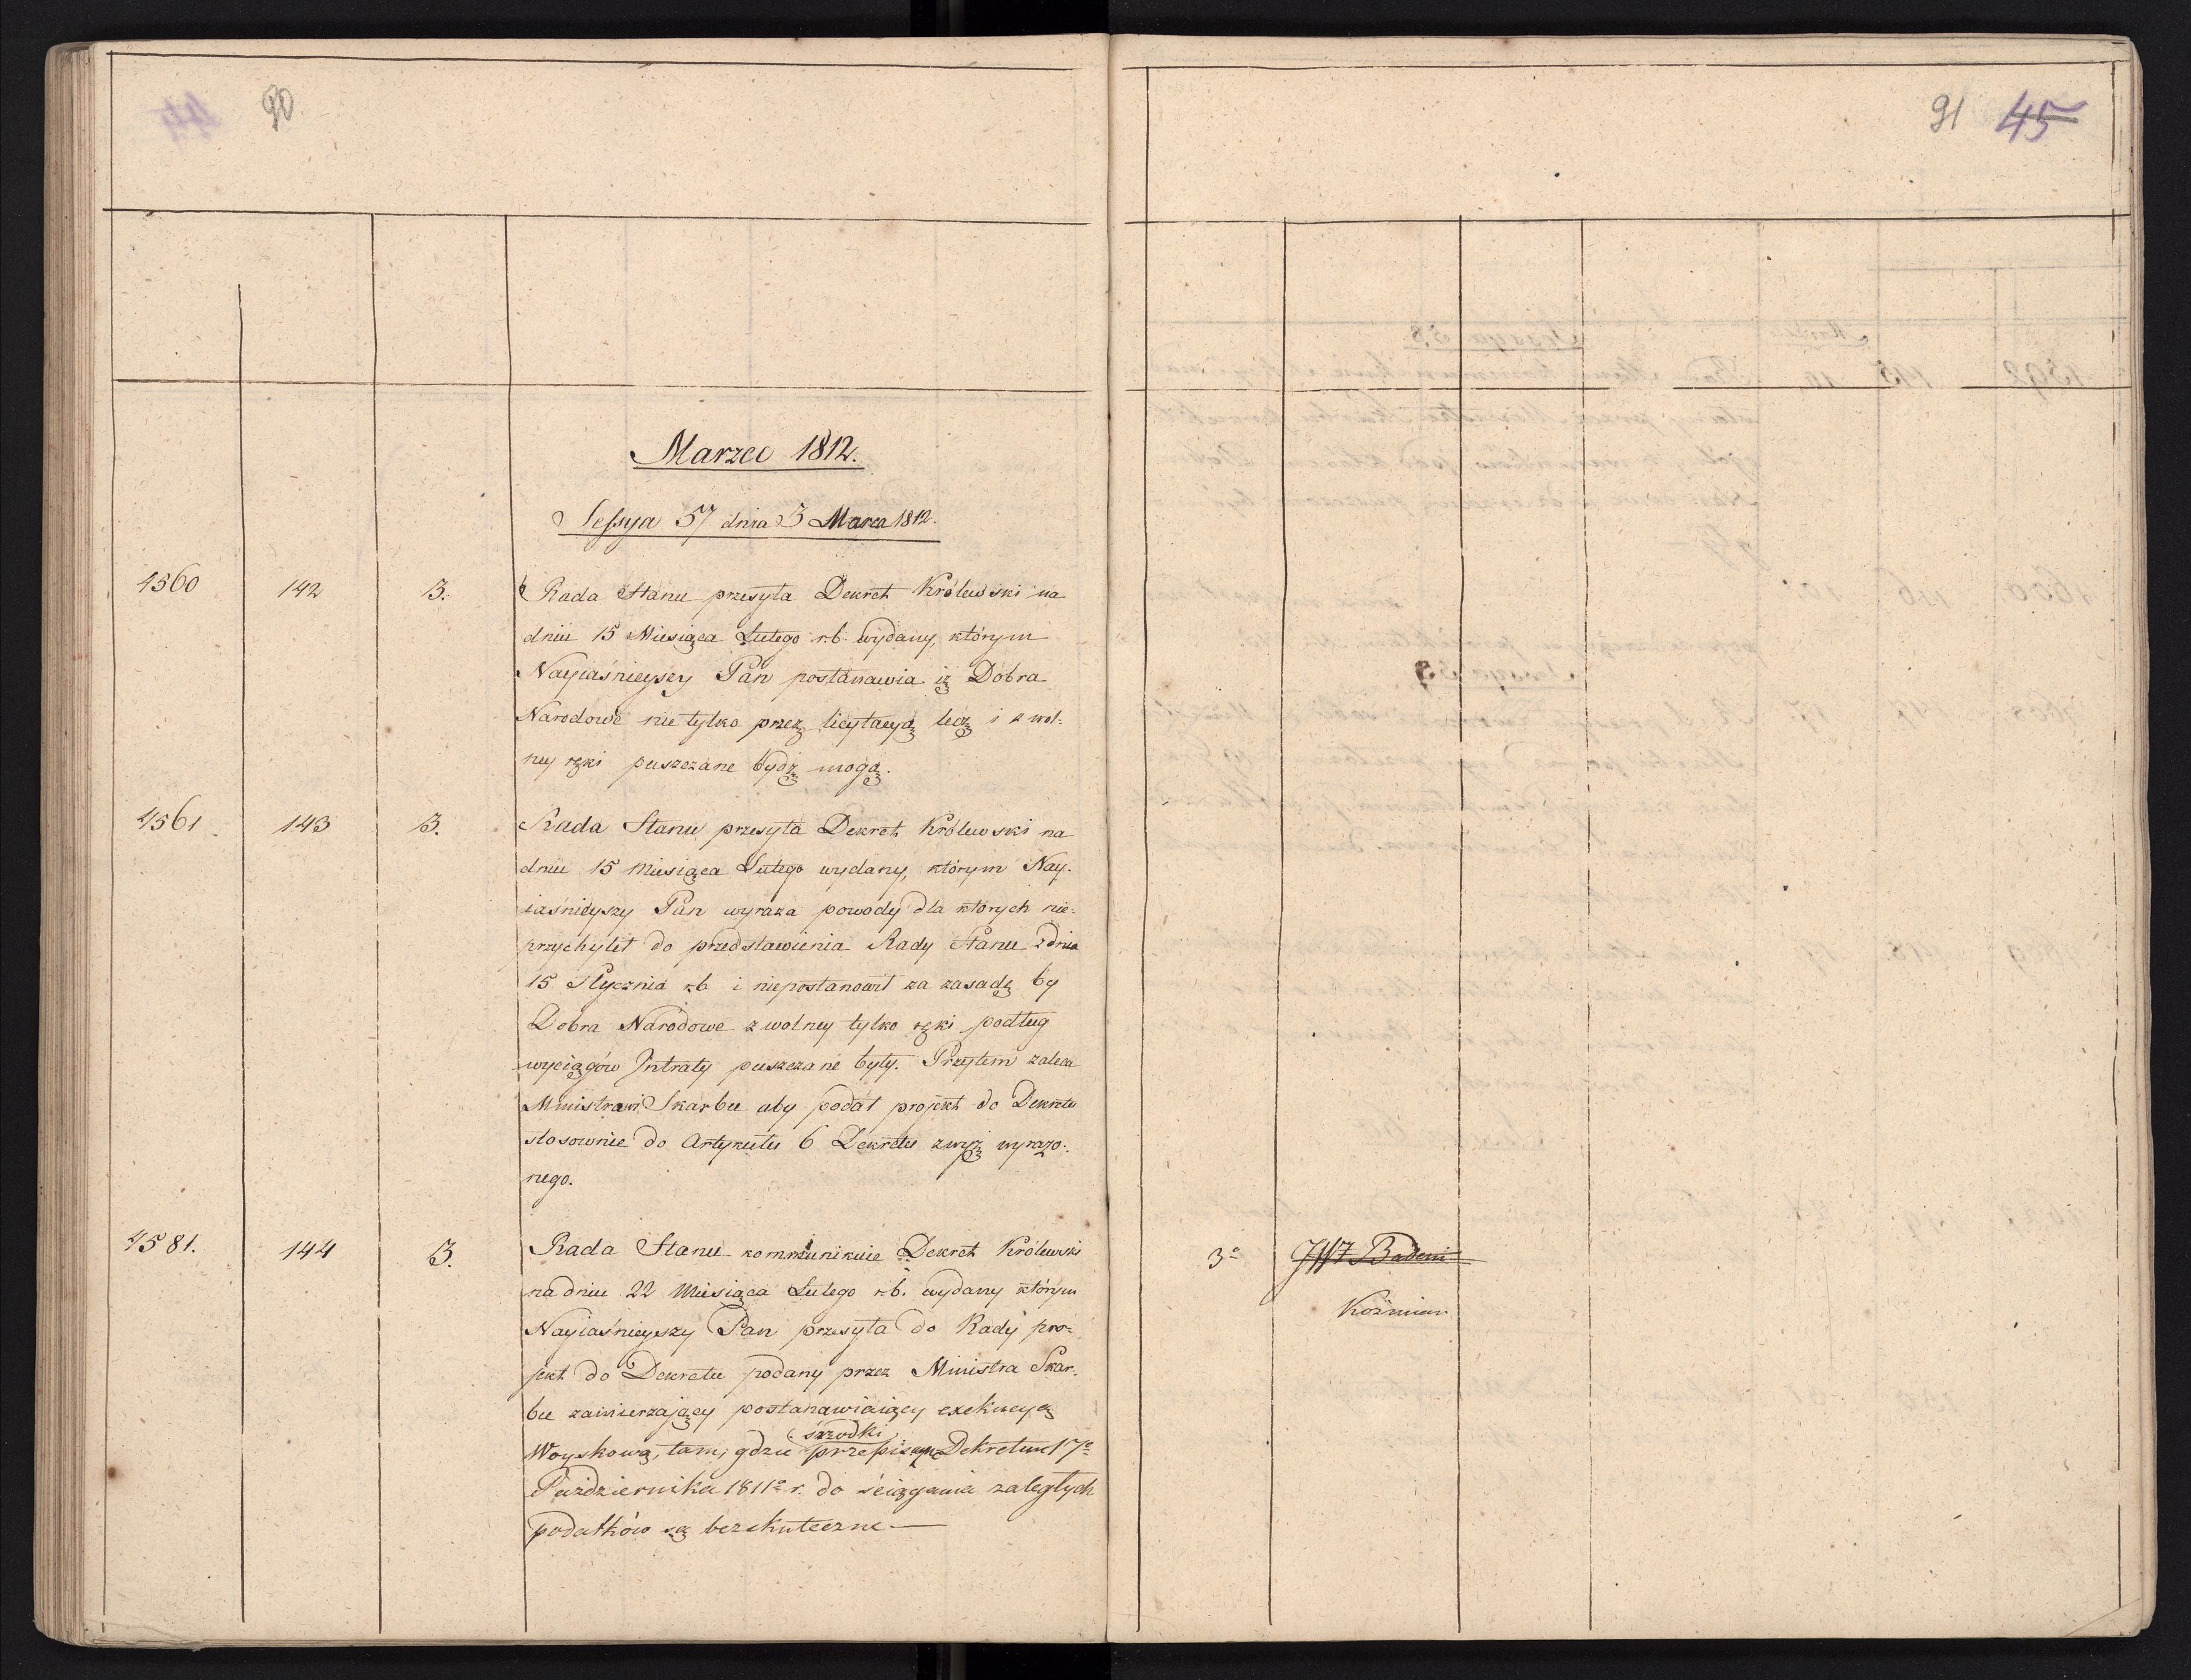 90
91 45
Marzec 1812.
Sessya 57 dnia 3 Marca 1812.
1560 142 3. Rada Stanu przesyła Dekret Królewski na
dniu 15 Miesiąca Lutego r.b. wydany, którym
Nayiaśnieyszy Pan postanawia iż Dobra
Narodowe nie tylko przez licytacyą lecz i z wol:
ney ręki puszczane bydź mogą.
1561 143 3. Rada Stanu przesyła Dekret Królewski na
dniu 15 Miesiąca Lutego wydany, którym Nay-
iaśnieyszy Pan wyraża powody dla których nie:
przychylił do przedstawienia Rady Stanu z dnia
15 Stycznia r.b. i niepostanowił za zasadę by
Dobra Narodowe z wolney tylko ręki podług
wyciągów Intraty puszczane były. Przytem zaleca
Ministrowi Skarbu aby podał projekt do Dekretu
stosownie do Artykułu 6 Dekretu zwyż wyrażo:
nego.
1581. 144 3. Rada Stanu kommunikuie Dekret Królewski
na dniu 22 Miesiąca Lutego r.b. wydany którym
Nayiaśnieyszy Pan przesyła do Rady pro:
jekt do Dekretu podany przez Ministra Skar:
bu zamierzający postanawiaiący exekucyą
Woyskową, tam, gdzie śrzodki przepisane Dekretem 17º
Października 1811º r. do ściągania zaległych
podatków są bezskuteczne —
3º JW Badeni
Koźmian